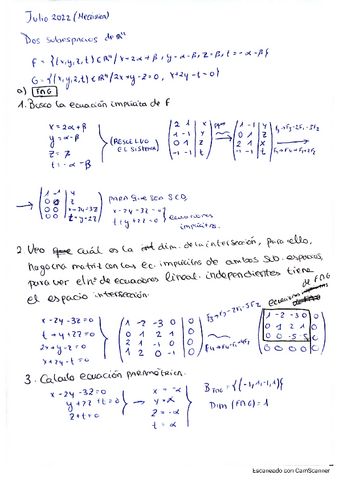 Julio 2022 (Mecánica)
Dos subespacios de ℝ⁴
F = {(x,y,z,t) ∈ ℝ⁴ / x=2α+β, y=α-β, z=β, t=-α-β}
G = {(x,y,z,t) ∈ ℝ⁴ / 2x+y-z=0, x+2y-t=0}
a) F∩G
1. Busco la ecuación implícita de F
x = 2α+β
y = α-β
z =
t = -α-β
(RESUELVO EL SISTEMA)
2 1 x
1 -1 y
0 1 z
-1 -1 t
1 -1 y
0 1 z
2 1 x
-1 -1 t
PARA QUE SEA SCD,
x-2y-3z=0
ecuaciones implícitas.
2. Veo cuál es la dim. de la intersección, para ello,
hago una matriz con las ec. implícitas de ambos sub. espacios,
para ver el nº de ecuaciones lineal. independientes tiene
el espacio intersección.
ecuaciones de F∩G
x-2y-3z=0
2x+y-z=0
x+2y-t=0
1 -2 -3 0 0
0 1 2 1 0
2 1 -1 0 0
1 2 0 -1 0
1 -2 -3 0 0
0 1 2 1 0
0 0 -5 -5 0
0 0 0 0 0
3. Calculo ecuación paramétrica.
x-2y-3z=0
y+2z+t=0
z+t=0
x = -α
y = α
z = -α
t = α
B F∩G = {(-1,1,-1,1)}
Dim (F∩G) = 1
Escaneado con CamScanner